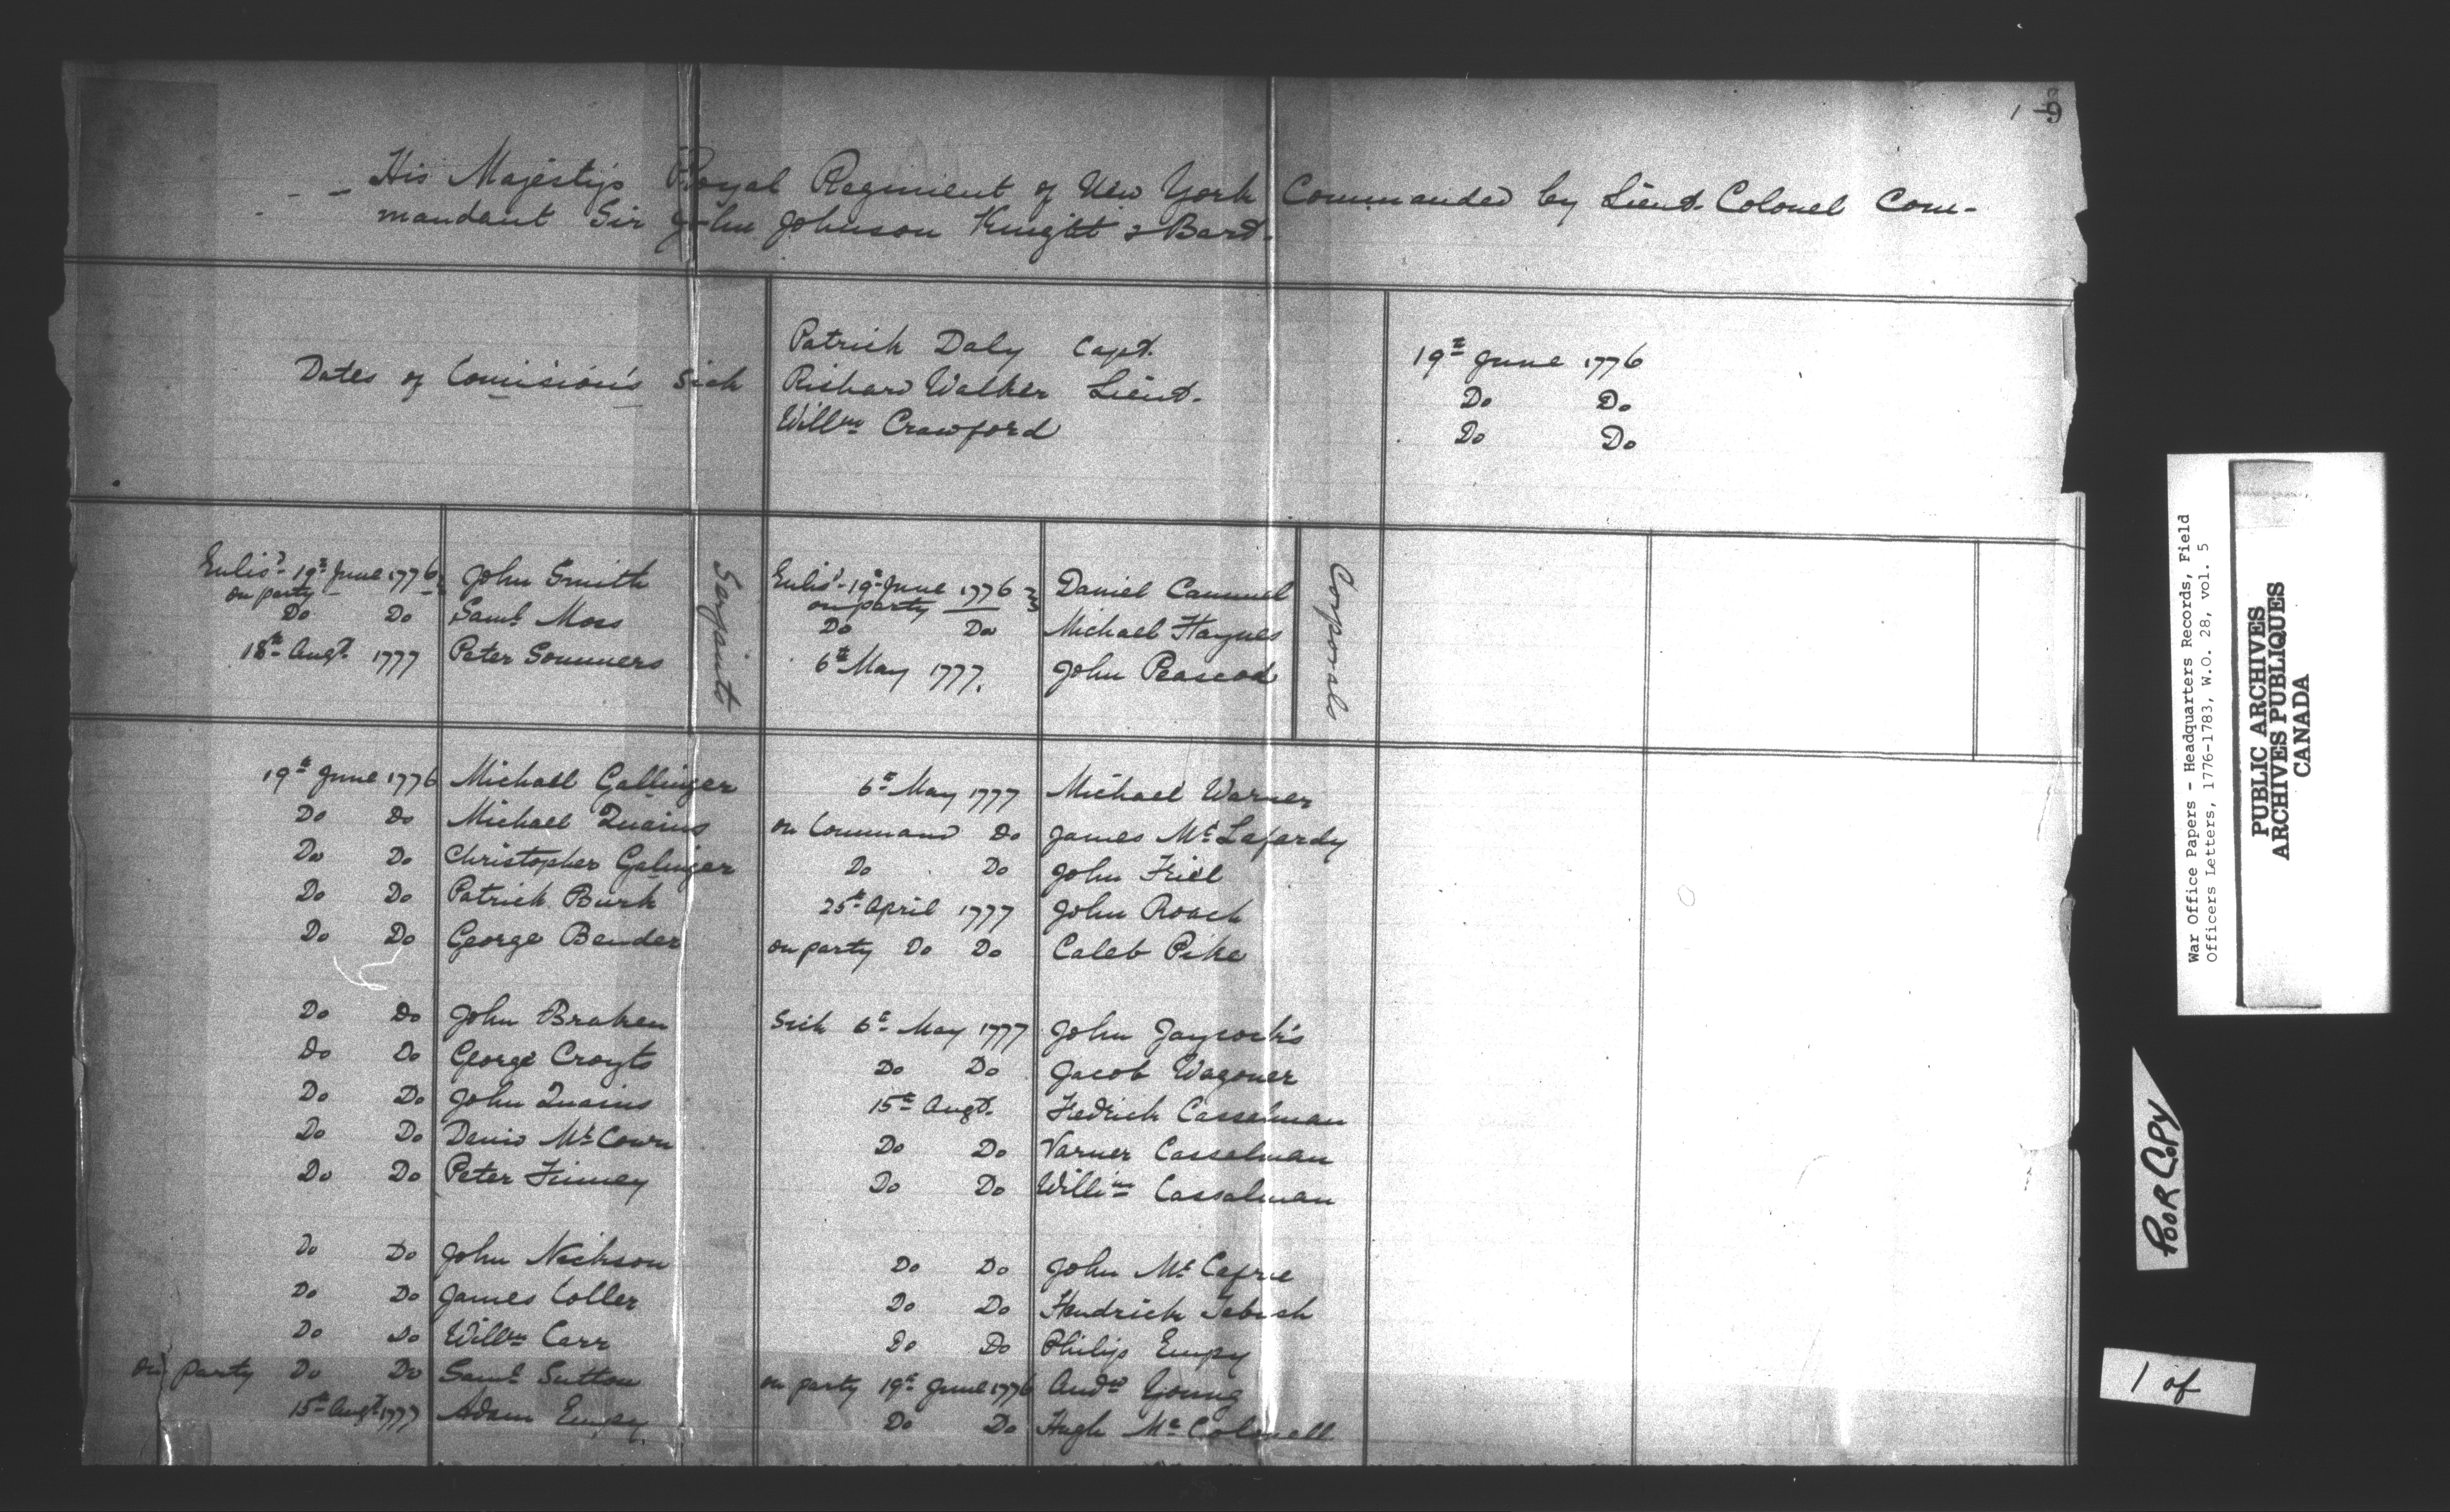 1 9
His Majesty's Royal Regiment of New York Commanded by Lieut. Colonel Com-
mandant Sir John Johnson Knight & Bart.
Dates of Comisión's Sick
Patrick Daly Capt. 19th June 1776
Richard Walker Lieut. Do Do
Willm Crawford Do Do
Enlisd. 19th June 1776 John Smith
on party
Do Do Saml Moss
18th Augt. 1777 Peter Sommers
Serjeants
Enlisd. 19th June 1776 Daniel Cammel
on party
Do Do Michael Haynes
6th May 1777. John Peascod
Corporals
19th June 1776 Michael Gallinger
Do Do Michael Quains
Do Do Christopher Galinger
Do Do Patrick Burk
Do Do George Bender
Do Do John Braken
Do Do George Croyts
Do Do John Quains
Do Do Denis Mc Cown
Do Do Peter Finney
Do Do John Nickson
Do Do James Coller
Do Do Willm Carr
on party Do Do Saml Sutton
15th Augt. 1777 Adam Empy
6th May 1777 Michael Warner
on Command Do James Mc Lafardy
Do Do John Friel
25th April 1777 John Roach
on party Do Do Caleb Pike
Sick 6th May 1777 John Jaycock's
Do Do Jacob Wagoner
15th Augt. Hedrick Casselman
Do Do Varner Casselman
Do Do Willim Cassalman
Do Do John Mc Cafrie
Do Do Hendrick
Do Do Philip Empy
on party 19th June 1776 Andw Young
Do Do Hugh Mc Colmell
War Office Papers - Headquarters Records, Field
Officers Letters, 1776-1783, W.O. 28, vol. 5
PUBLIC ARCHIVES
ARCHIVES PUBLIQUES
CANADA
POOR COPY
1 of